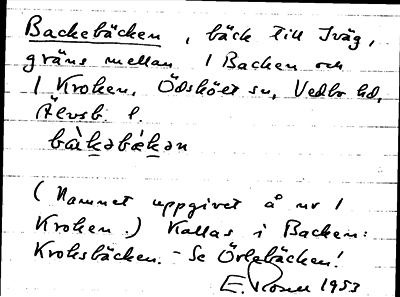 Backebäcken, bäck till Iväg,
gräns mellan 1 Backen och
1 Kroken, Ödskölt sn, Vedbo hd,
Älvsb. l.
bàkəbækən
(Namnet uppgivet å nr 1
Kroken.) Kallas i Backen:
Kroksbäcken. - Se Örlebäcken!
E. 1953